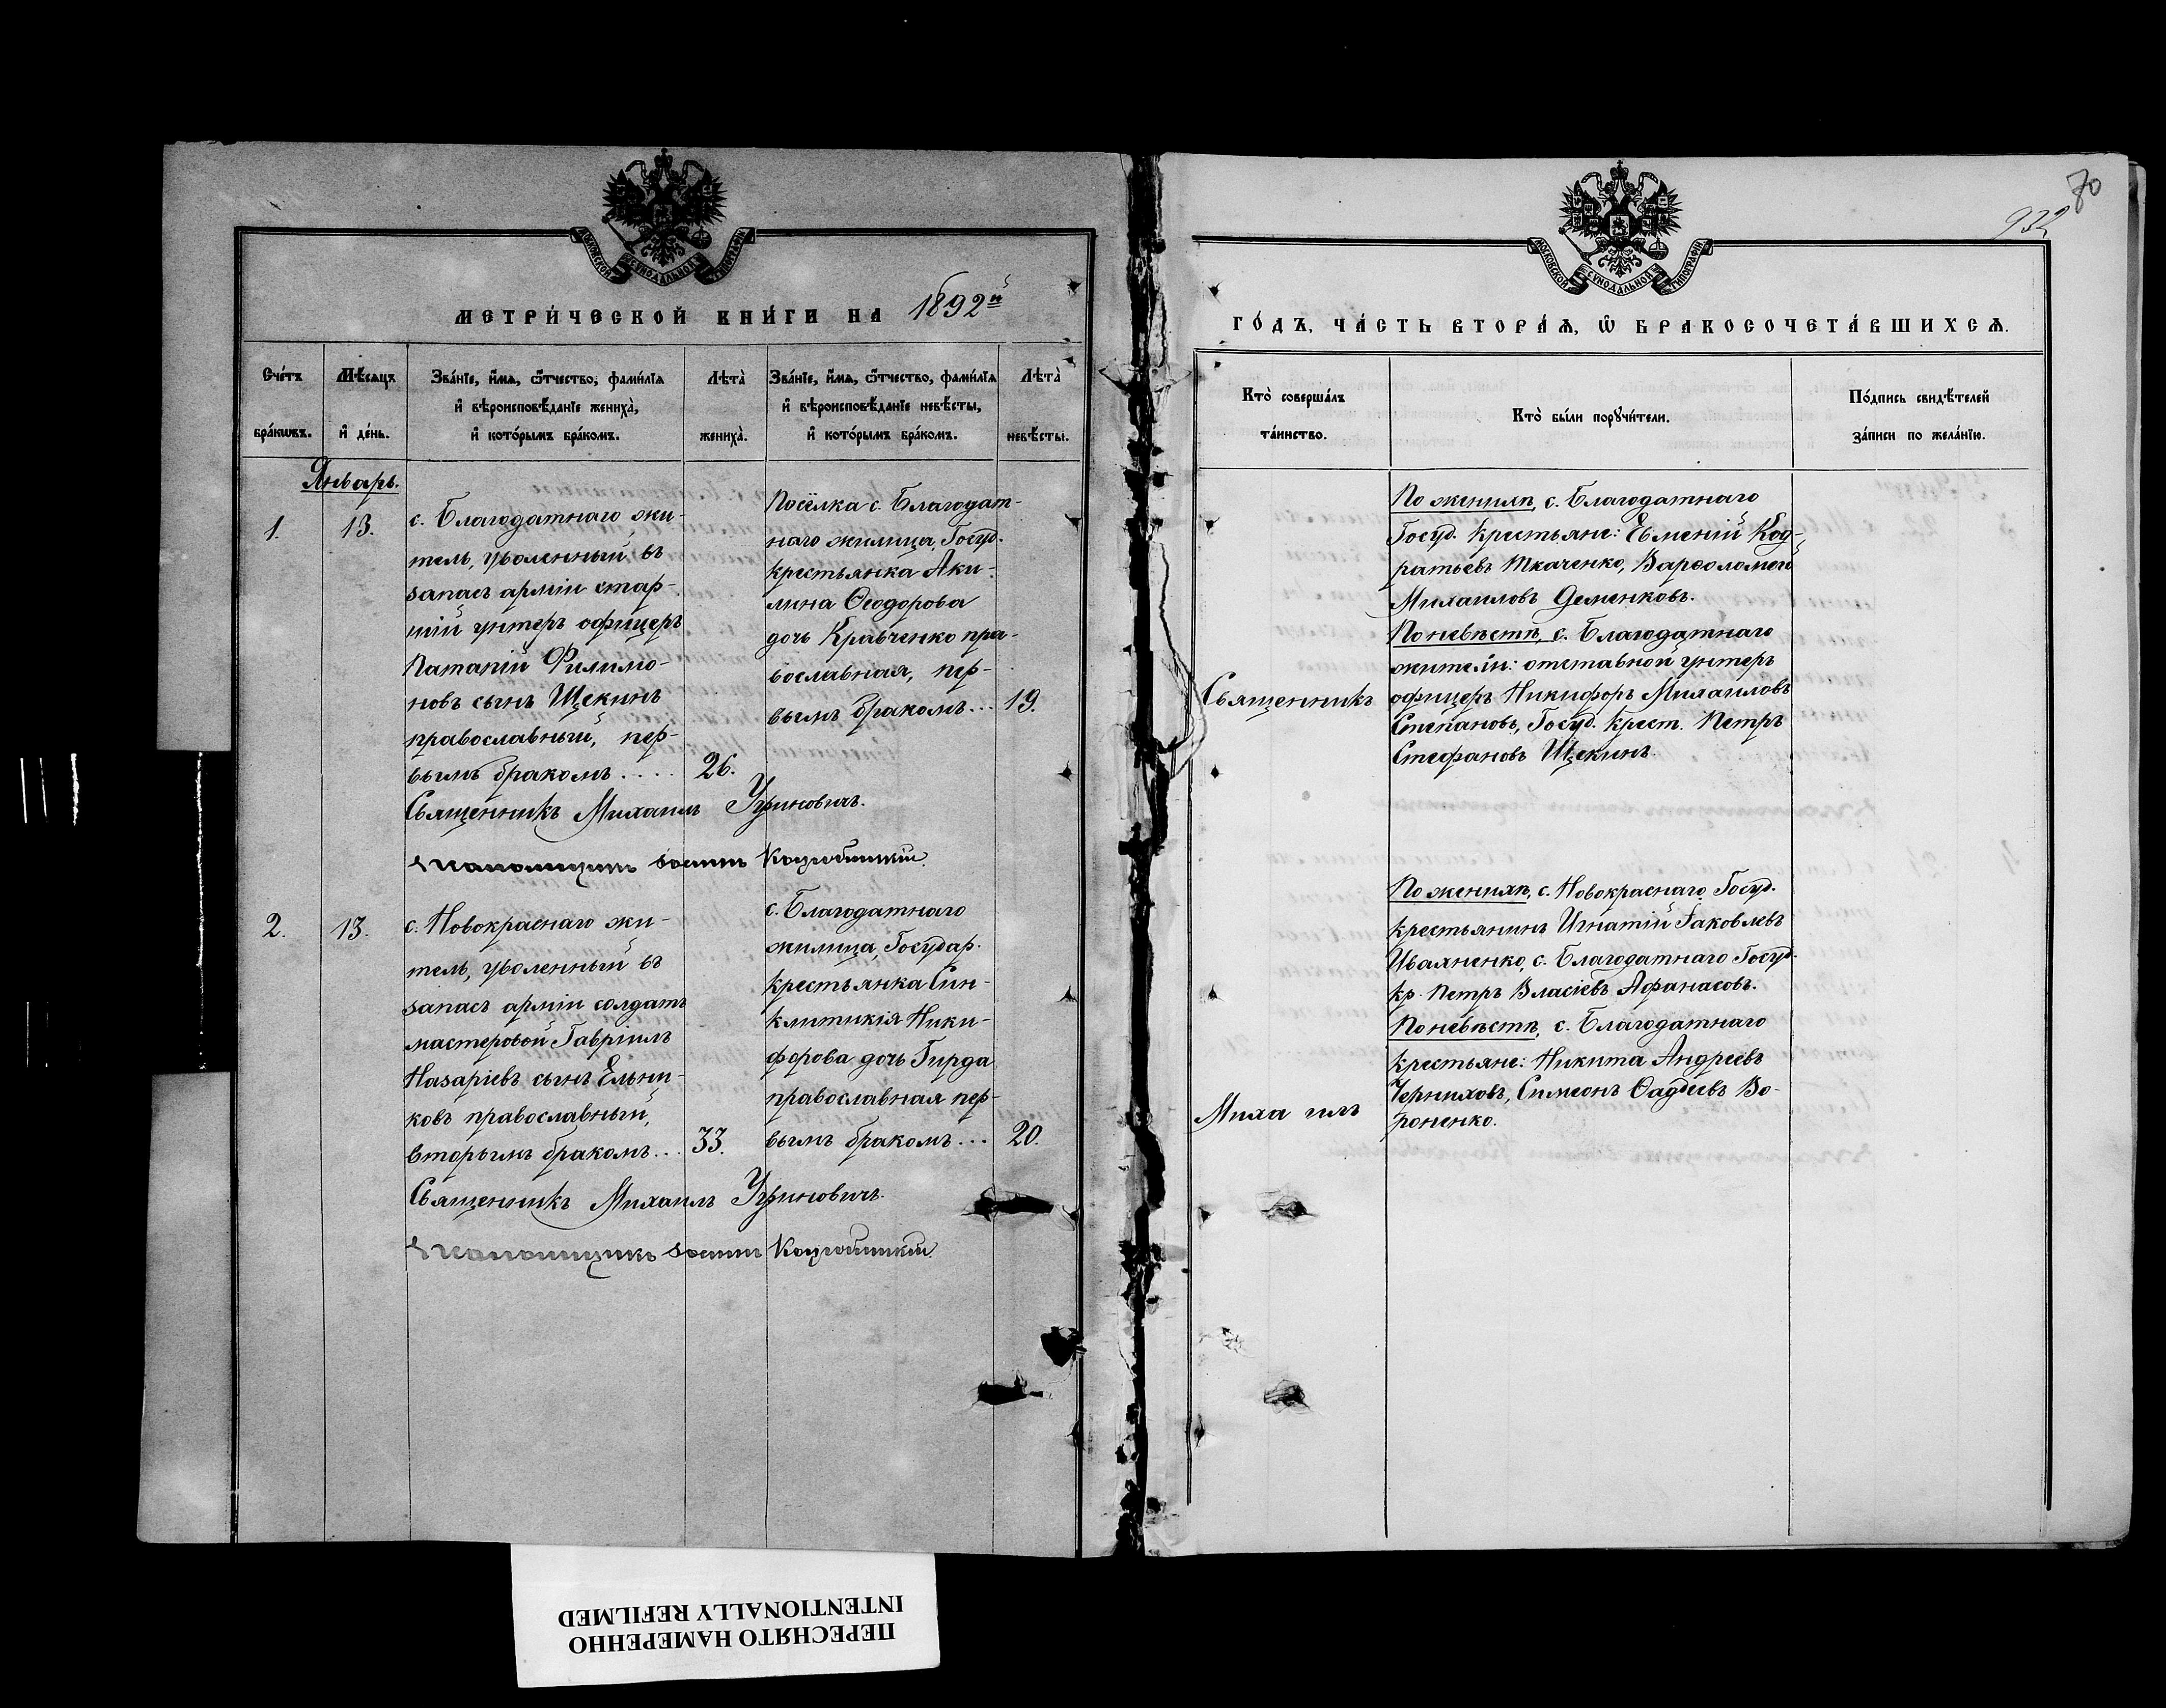 70
932
МОСКОВСКОЙ СѴНОДАЛЬНОЙ ТИПОГРАФІИ
МЕТРИ́ЧЕСКОЙ КНИ́ГИ НА 1892й
Сче́тъ бра́кѡвъ.
Мѣ́сяцъ и҆ де́нь.
Зва́нїе, и҆́мя, ѻ҆́тчество, фами́лїя
и҆ вѣроисповѣ́данїе жениха̀,
и҆ кото́рымъ бра́комъ.
Лѣта̀
жениха̀.
Зва́нїе, и҆́мя, ѻ҆́тчество, фами́лїя
и҆ вѣроисповѣ́данїе невѣ́сты,
и҆ кото́рымъ бра́комъ.
Лѣта̀
невѣ́сты.
Январь.
1.
13.
с. Благодатнаго жи-
тель, уволенный въ
запасъ арміи стар-
шій унтеръ офицеръ
Патапій Филимо-
новъ сынъ Щекинъ
православный, пер-
вымъ бракомъ....
26.
Посёлка с. Благодат-
наго жилица, Госуд.
крестьянка Аки-
лина Ѳеодорова
дочь Кравченко пра-
вославная, пер-
вымъ бракомъ...
19.
Священникъ Михаилъ Угриновичъ.
2.
13.
с. Новокраснаго жи-
тель, уволенный въ
запасъ арміи солдатъ
мастеровой Гавріилъ
Назаріевъ сынъ Ельни-
ковъ православный,
вторымъ бракомъ...
33.
с. Благодатнаго
жилица, Государ.
крестьянка Син-
клитикія Ники-
форова дочь Гирда
православная пер-
вымъ бракомъ...
20.
Священникъ Михаилъ Угриновичъ.
МОСКОВСКОЙ СѴНОДАЛЬНОЙ ТИПОГРАФІИ
ГО́ДЪ, ЧА́СТЬ ВТОРА́Ѧ, Ѡ҆ БРАКОСОЧЕТА́ВШИХСѦ.
Кто̀ соверша́лъ
та́инство.
Кто̀ бы́ли порꙋчи́тели.
По́дпись свидѣ́телей
за́писи по жела́нїю.
Священникъ
По женихѣ, с. Благодатнаго
Госуд. крестьяне: Евменій Код-
ратьевъ Ткаченко, Варѳоломей
Михаиловъ Деменковъ.
По невѣстѣ, с. Благодатнаго
жители: отставной унтеръ
офицеръ Никифоръ Михаиловъ
Степановъ, Госуд. крест. Петръ
Стефановъ Щекинъ.
Михаилъ
По женихѣ, с. Новокраснаго Госуд.
крестьянинъ Игнатій Іаковлевъ
Иваненко, с. Благодатнаго Госуд.
кр. Петръ Власіевъ Афанасовъ.
По невѣстѣ, с. Благодатнаго
крестьяне: Никита Андреевъ
Черниховъ, Симеонъ Ѳаддеевъ Во-
роненко.
ПЕРЕСНЯТО НАМЕРЕННО
INTENTIONALLY REFILMED